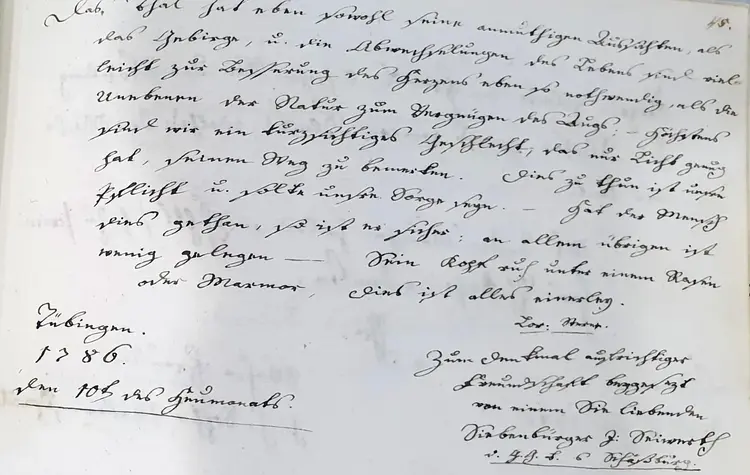 48.
Das Thal hat eben sowohl seine anmuthigen Aussichten, als
das Gebirge, u. die Abwechselungen des Lebens sind viel-
leicht zur Besserung des Herzens eben so nothwendig, als die
Unebenen der Natur zum Vergnügen des Augs; – höchstens
sind wir ein kurzsichtiges Geschlecht, das nur Licht genug
hat, seinen Weg zu bemerken. Dies zu thun ist unsre
Pflicht u. solte unsre Sorge seyn. – Hat der Mensch
dies gethan, so ist er sicher; an allem übrigen ist
wenig gelegen — Sein Kopf ruh unter einem Rasen
oder Marmor, dies ist alles einerley.
Lor: Sterne.
Tübingen.
1786.
den 10t des Heumonats.
Zum Denkmal aufrichtiger
Freundschaft beygesezt
von einem Sie liebenden
Siebenbürger J: Seiwerth
Schäßburg.